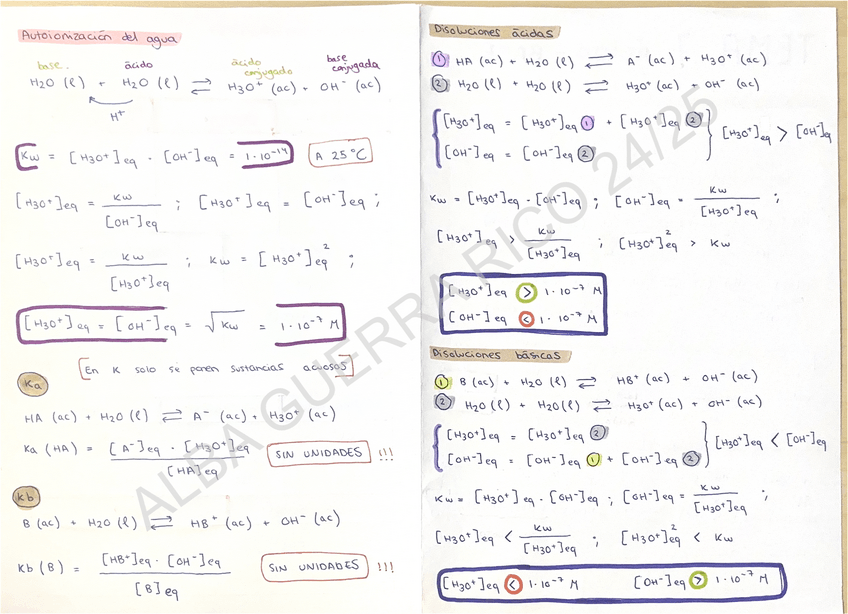 Autoionización del agua
base. ácido ácido conjugado base conjugada
H2O (l) + H2O (l) ⇌ H3O⁺ (ac) + OH⁻ (ac)
H⁺
Kw = [H3O⁺]eq · [OH⁻]eq = 1·10⁻¹⁴ A 25°C
[H3O⁺]eq = Kw / [OH⁻]eq ; [H3O⁺]eq = [OH⁻]eq ;
[H3O⁺]eq = Kw / [H3O⁺]eq ; Kw = [H3O⁺]²eq ;
[H3O⁺]eq = [OH⁻]eq = √Kw = 1·10⁻⁷ M
[En K solo se ponen sustancias acuosas]
Ka
HA (ac) + H2O (l) ⇌ A⁻ (ac) + H3O⁺ (ac)
Ka (HA) = [A⁻]eq · [H3O⁺]eq / [HA]eq SIN UNIDADES !!!
Kb
B (ac) + H2O (l) ⇌ HB⁺ (ac) + OH⁻ (ac)
Kb (B) = [HB⁺]eq · [OH⁻]eq / [B]eq SIN UNIDADES !!!
Disoluciones ácidas
① HA (ac) + H2O (l) ⇌ A⁻ (ac) + H3O⁺ (ac)
② H2O (l) + H2O (l) ⇌ H3O⁺ (ac) + OH⁻ (ac)
{ [H3O⁺]eq = [H3O⁺]eq ① + [H3O⁺]eq ② } [H3O⁺]eq > [OH⁻]eq
[OH⁻]eq = [OH⁻]eq ②
Kw = [H3O⁺]eq · [OH⁻]eq ; [OH⁻]eq = Kw / [H3O⁺]eq ;
[H3O⁺]eq > Kw / [H3O⁺]eq ; [H3O⁺]²eq > Kw
[H3O⁺]eq > 1·10⁻⁷ M
[OH⁻]eq < 1·10⁻⁷ M
Disoluciones básicas
① B (ac) + H2O (l) ⇌ HB⁺ (ac) + OH⁻ (ac)
② H2O (l) + H2O (l) ⇌ H3O⁺ (ac) + OH⁻ (ac)
{ [H3O⁺]eq = [H3O⁺]eq ② } [H3O⁺]eq < [OH⁻]eq
[OH⁻]eq = [OH⁻]eq ① + [OH⁻]eq ②
Kw = [H3O⁺]eq · [OH⁻]eq ; [OH⁻]eq = Kw / [H3O⁺]eq ;
[H3O⁺]eq < Kw / [H3O⁺]eq ; [H3O⁺]²eq < Kw
[H3O⁺]eq < 1·10⁻⁷ M [OH⁻]eq > 1·10⁻⁷ M
ALBA GUERRA RICO 24/25